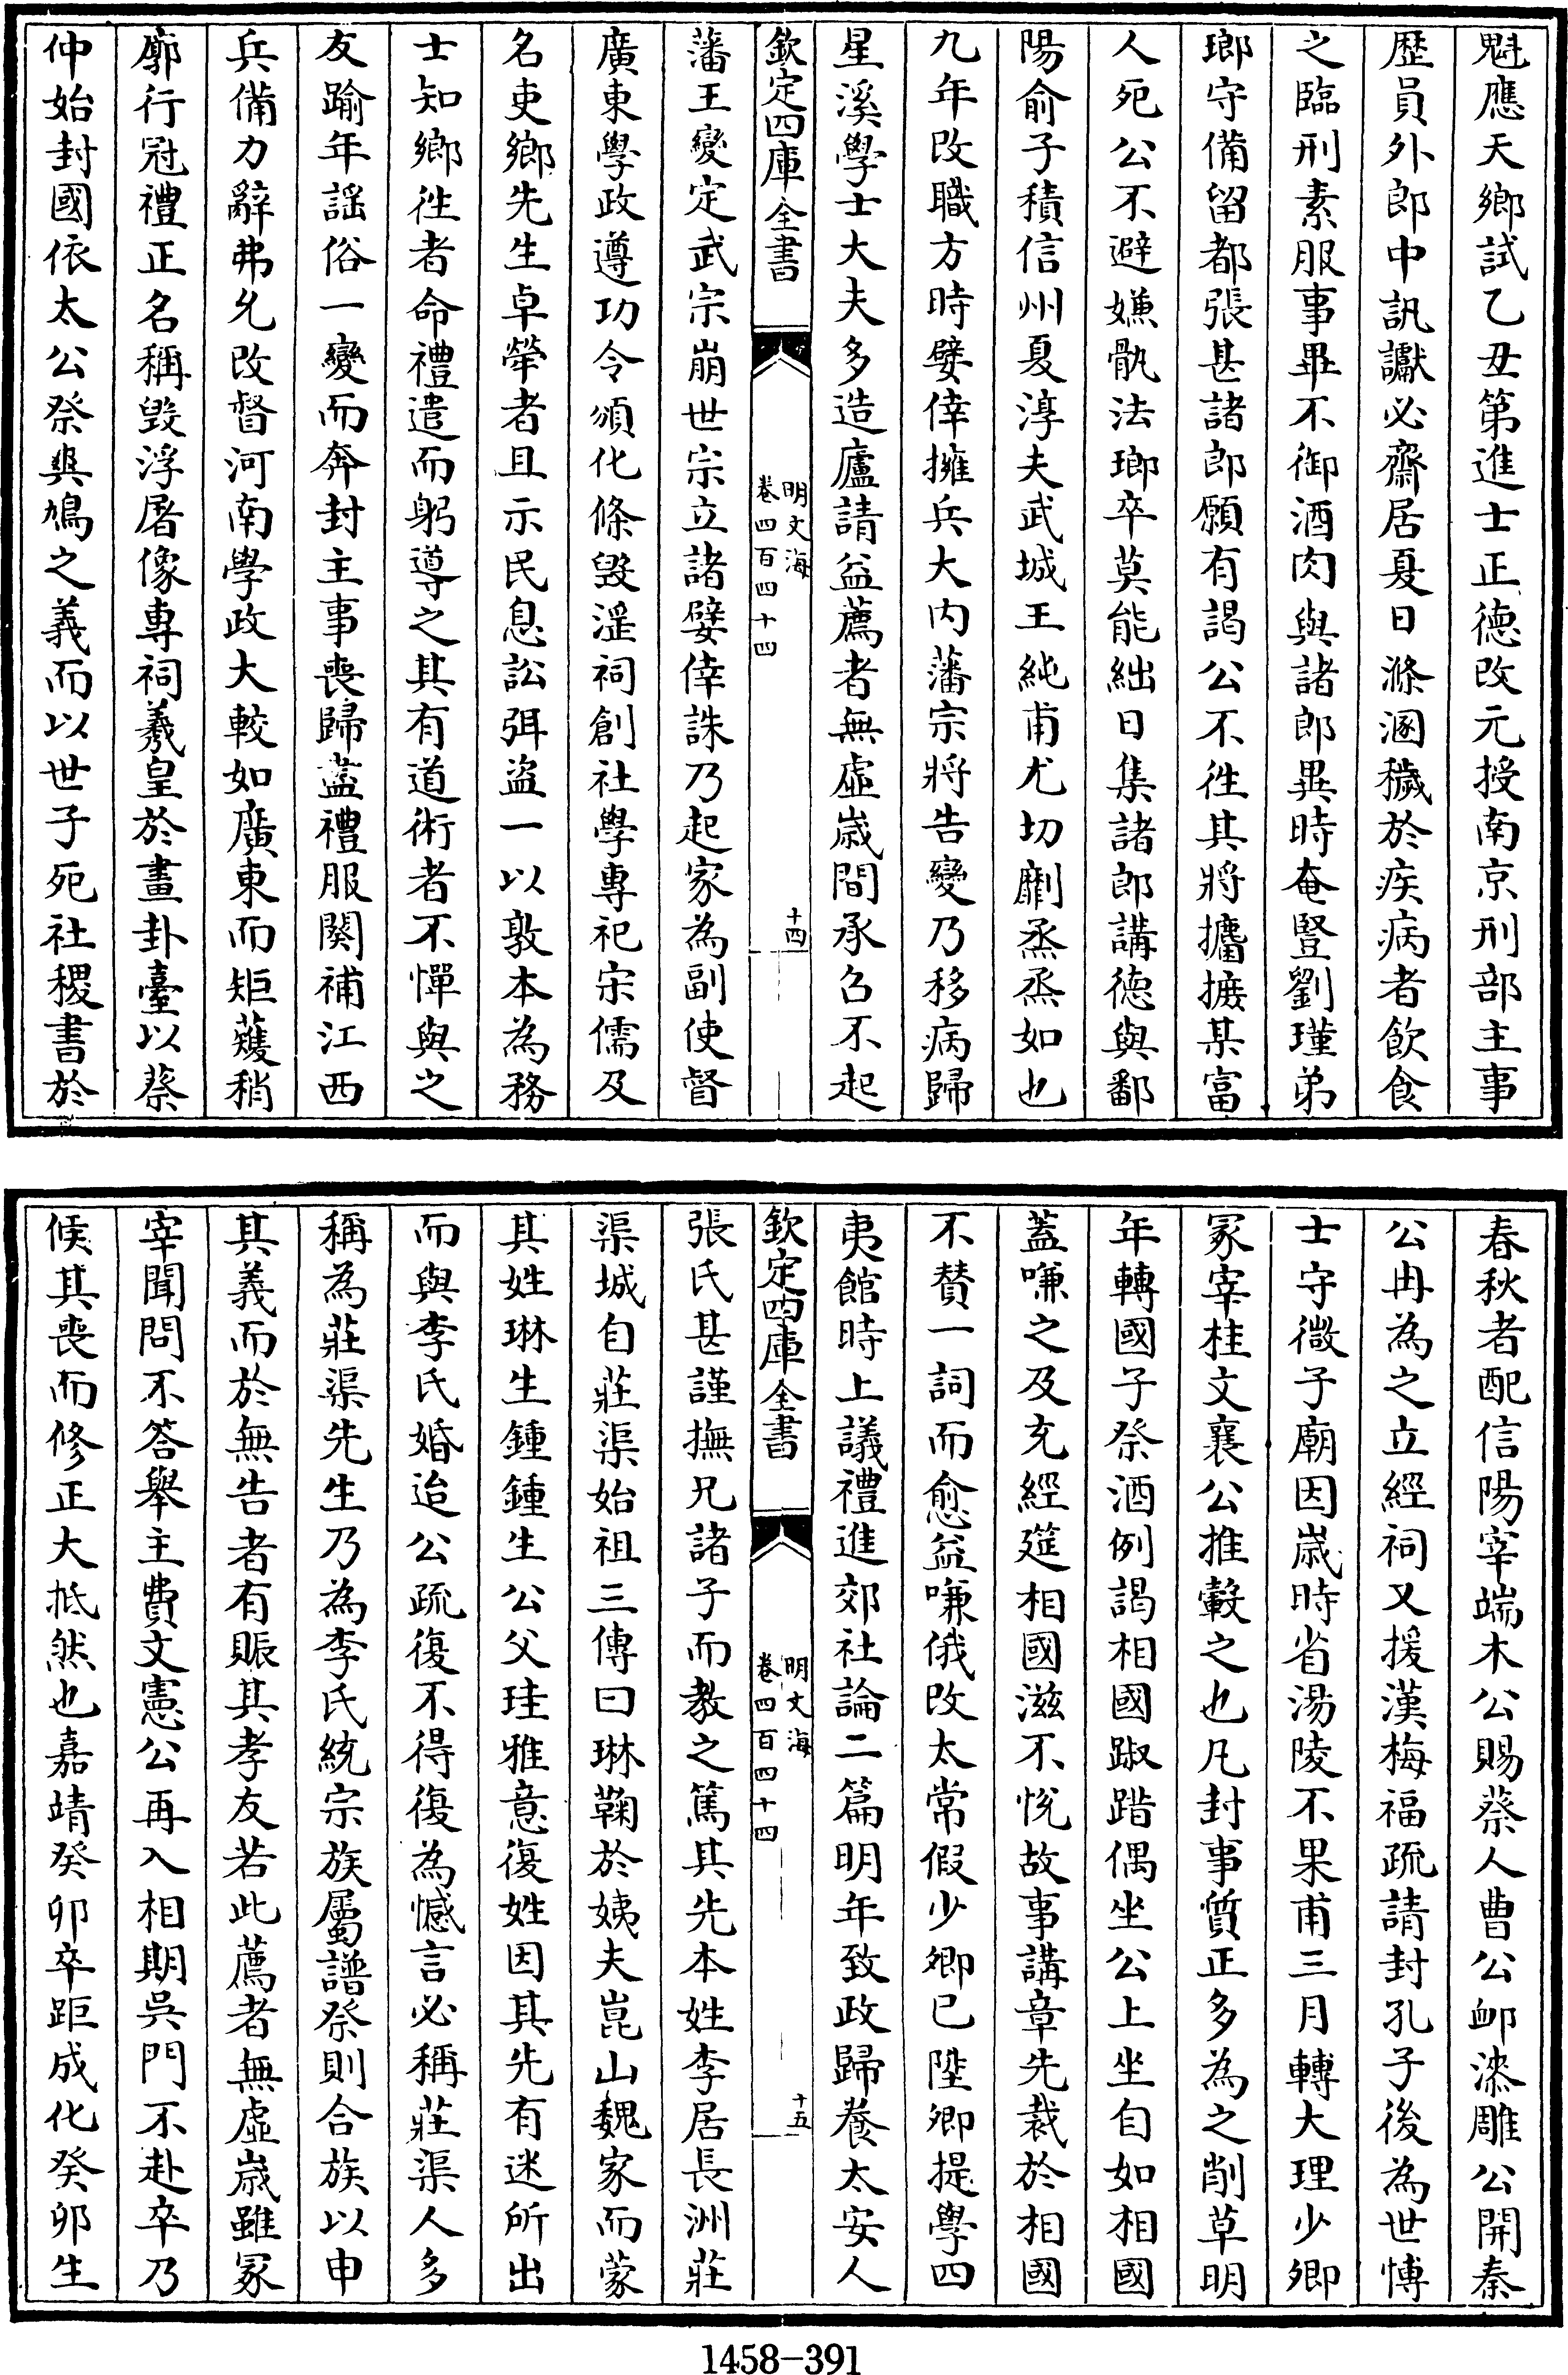 魁應天鄉試乙丑第進士正德改元授南京刑部主事
歴員外郎中訊讞必齋居夏日滌溷穢於疾病者飲食
之臨刑素服事畢不御酒肉與諸郎異時奄豎劉瑾弟
瑯守備留都張甚諸郎願有謁公不徃其將攟摭某富
人死公不避嫌骩法瑯卒莫能絀日集諸郎講德與鄱
陽俞子積信州夏淳夫武城王純甫尤切劘烝烝如也
九年改職方時嬖倖擁兵大内藩宗將告變乃移病歸
星溪學士大夫多造廬請益薦者無虛嵗間承召不起
欽定四庫全書
明文海
卷四百四十四
十四
藩王變定武宗崩世宗立諸嬖倖誅乃起家為副使督
廣東學政遵功令頒化條毁淫祠創社學專祀宋儒及
名吏鄉先生卓犖者且示民息訟弭盗一以敦本為務
士知鄉徃者命禮遣而躬導之其有道術者不憚與之
友踰年謡俗一變而奔封主事喪歸葢禮服闋補江西
兵備力辭弗允改督河南學政大較如廣東而矩矱稍
廓行冠禮正名稱毁浮屠像專祠羲皇於畫卦臺以蔡
仲始封國依太公祭爽鳩之義而以世子死社稷書於
春秋者配信陽宰端木公賜蔡人曹公卹漆雕公開秦
公冉為之立經祠又援漢梅福疏請封孔子後為世博
士守微子廟因嵗時省湯陵不果甫三月轉大理少卿
冢宰桂文襄公推轂之也凡封事質正多為之削草明
年轉國子祭酒例謁相國踧踖偶坐公上坐自如相國
蓋嗛之及充經筵相國滋不悅故事講章先裁於相國
不賛一詞而愈益嗛俄改太常假少卿已陞卿提學四
夷館時上議禮進郊社論二篇明年致政歸養太安人
欽定四庫全書
明文海
卷四百四十四
十五
張氏甚謹撫兄諸子而教之篤其先本姓李居長洲莊
渠城自莊渠始祖三傳曰琳鞠於姨夫崑山魏家而蒙
其姓琳生鍾鍾生公父珪雅意復姓因其先有迷所出
而與李氏婚迨公疏復不得復為憾言必稱莊渠人多
稱為莊渠先生乃為李氏統宗族屬譜祭則合族以申
其義而於無告者有賑其孝友若此薦者無虛嵗雖冢
宰聞問不答舉主費文憲公再入相期吳門不赴卒乃
候其喪而修正大抵然也嘉靖癸卯卒距成化癸卯生
1458-391